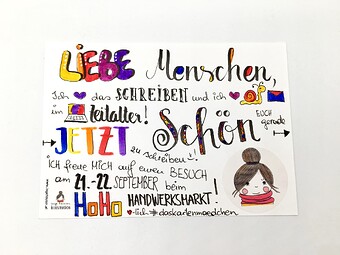 LIEBE Menschen,
Ich ♥ das SCHREIBEN und ich ♥
im Zeitalter! EUCH gerade
JETZT Schön
zu schreiben!
ICH freue MICH auf euren BESUCH
am 21.-22. SEPTEMBER beim
HoHo HANDWERKSMARKT!
♥-lich daskartenmaedchen